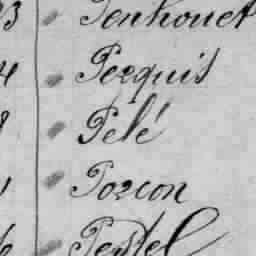 3 Penhouet
4 Pezquis
8 Pelé
1 Pozcon
6 Pestel